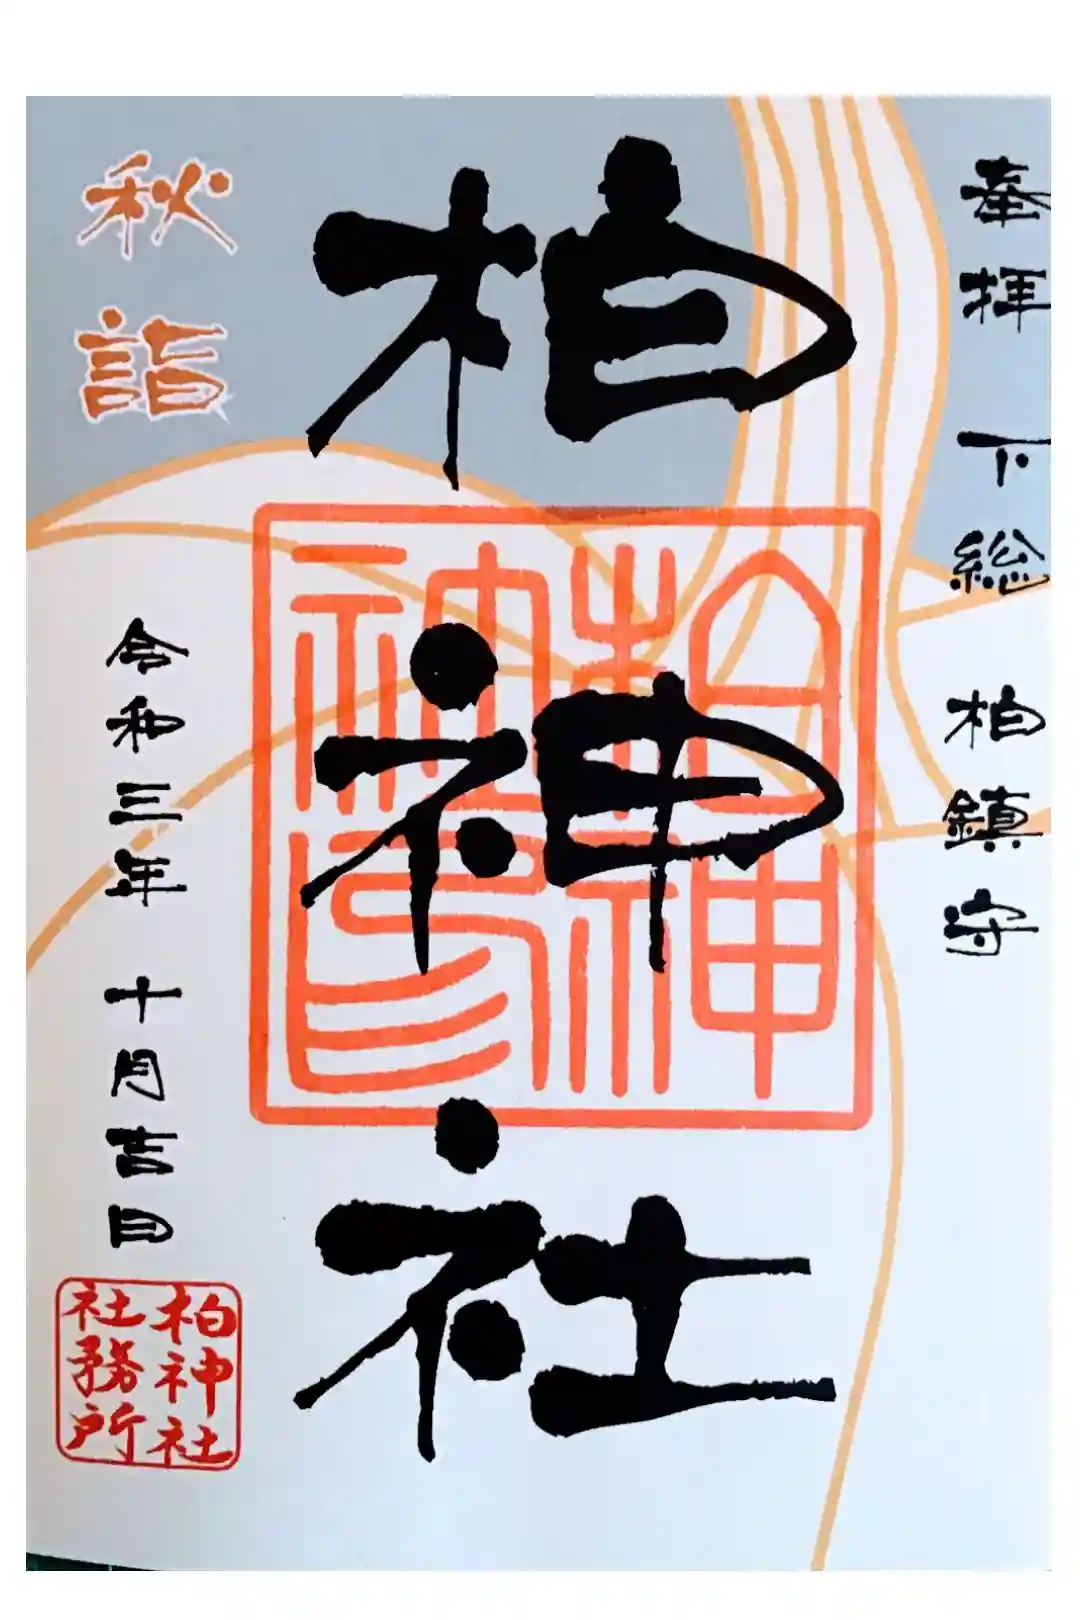 奉拝 下総 柏鎮守
柏神社
柏神社
神社印
秋詣
令和三年 十月吉日
柏神社
社務所